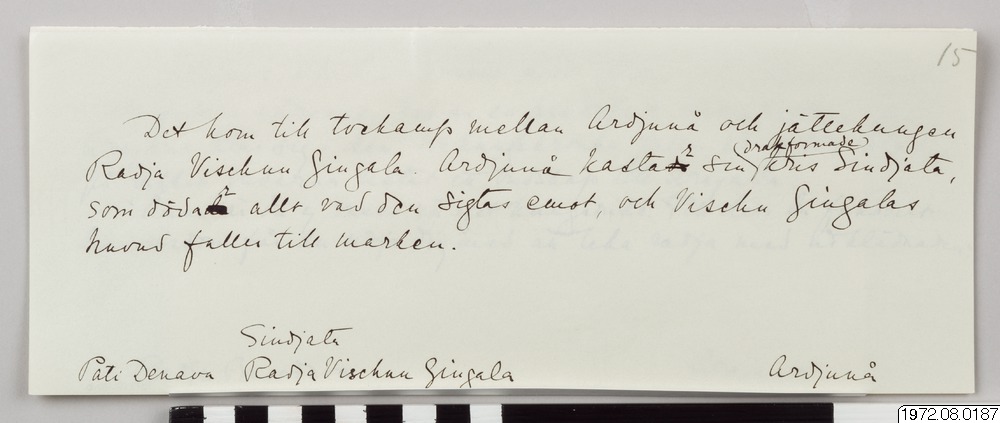 15
Det kom till tvekamp mellan Ardjunå och jättekungen
Radja Vischnu Gingala. Ardjunå kastar sin (drakformade) kris Sindjata,
som dödar allt vad den siktas emot, och Vischnu Gingalas
huvud faller till marken.
Sindjata
Pati Denava Radja Vischnu Gingala Ardjunå
1972.08.0187